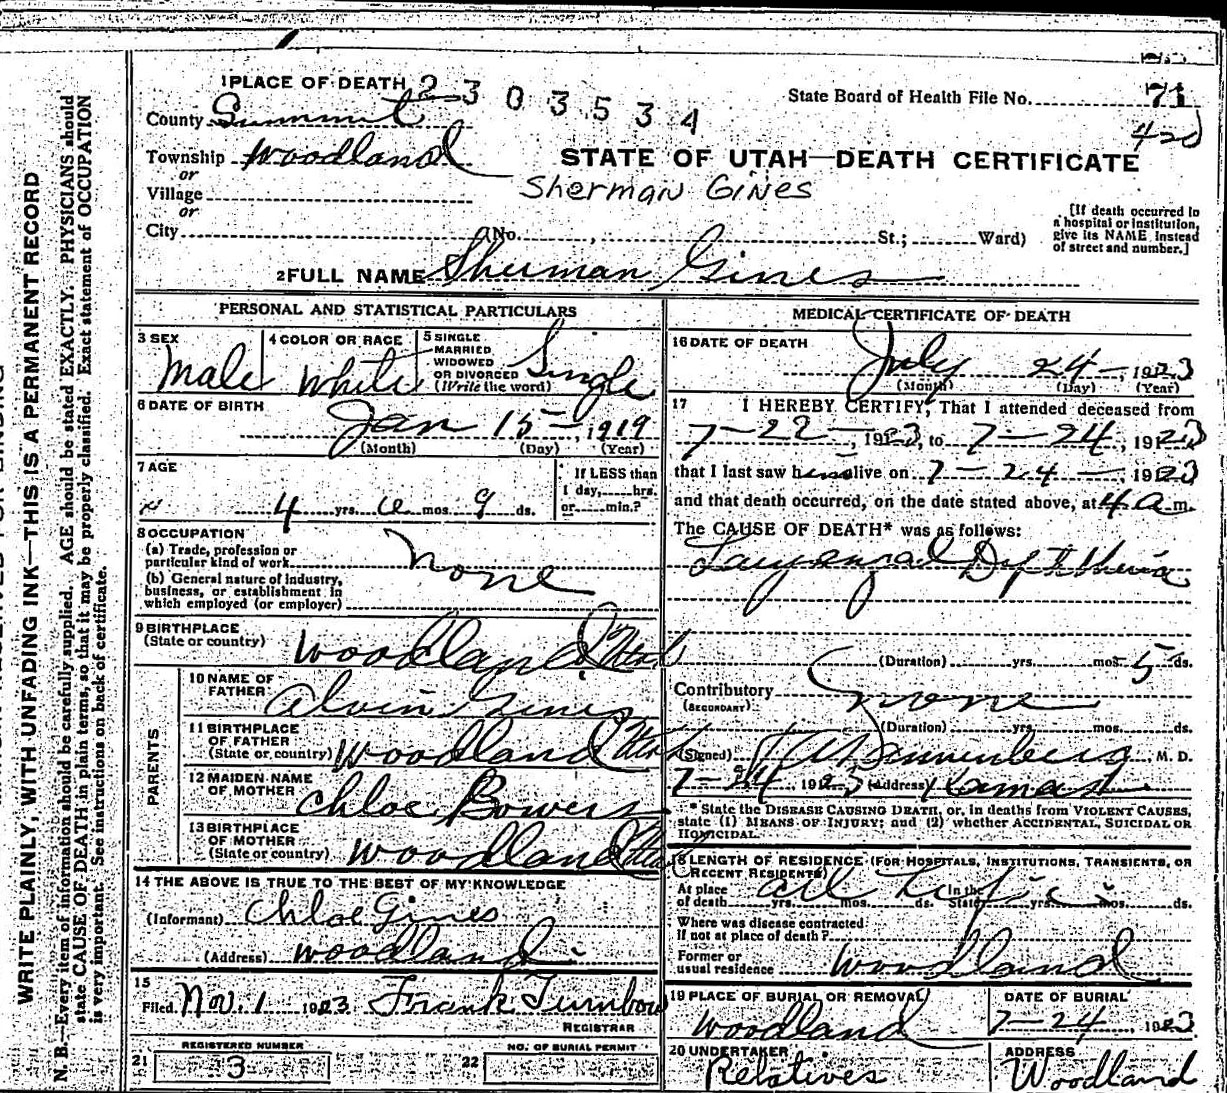 1 PLACE OF DEATH 2303534
State Board of Health File No. 71
420
County Summit
Township Woodland
or
Village
or
City
STATE OF UTAH—DEATH CERTIFICATE
Sherman Gines
(No. , St.; Ward)
[If death occurred in
a hospital or institution,
give its NAME instead
of street and number.]
2 FULL NAME Sherman Gines
PERSONAL AND STATISTICAL PARTICULARS
3 SEX
Male
4 COLOR OR RACE
White
5 SINGLE
MARRIED
WIDOWED
OR DIVORCED
(Write the word)
Single
6 DATE OF BIRTH
Jan 15-, 1919
(Month) (Day) (Year)
7 AGE
4 yrs. 6 mos. 9 ds.
If LESS than
1 day, hrs.
or min.?
8 OCCUPATION
(a) Trade, profession or
particular kind of work
none
(b) General nature of industry,
business, or establishment in
which employed (or employer)
9 BIRTHPLACE
(State or country) Woodland Utah
PARENTS
10 NAME OF
FATHER Alvin Gines
11 BIRTHPLACE
OF FATHER
(State or country) Woodland Utah
12 MAIDEN NAME
OF MOTHER Chloe Bowers
13 BIRTHPLACE
OF MOTHER
(State or country) Woodland Utah
14 THE ABOVE IS TRUE TO THE BEST OF MY KNOWLEDGE
(Informant) Chloe Gines
(Address) Woodland
15
Filed Nov. 1 1923 Frank Turnbow
REGISTRAR
21 REGISTERED NUMBER
3
22 NO. OF BURIAL PERMIT
MEDICAL CERTIFICATE OF DEATH
16 DATE OF DEATH
July 24-, 1923
(Month) (Day) (Year)
17 I HEREBY CERTIFY, That I attended deceased from
7-22-, 1923, to 7-24, 1923
that I last saw him alive on 7-24-, 1923
and that death occurred, on the date stated above, at 4 a m.
The CAUSE OF DEATH* was as follows:
(Duration) yrs. mos. 5 ds.
Contributory
(SECONDARY) none
(Duration) yrs. mos. ds.
(Signed) , M. D.
7-24, 1923 (Address) Kamas
* State the DISEASE CAUSING DEATH, or, in deaths from VIOLENT CAUSES,
state (1) MEANS OF INJURY; and (2) whether ACCIDENTAL, SUICIDAL OR
HOMICIDAL.
18 LENGTH OF RESIDENCE (FOR HOSPITALS, INSTITUTIONS, TRANSIENTS, OR
RECENT RESIDENTS)
At place
of death yrs. mos. ds. In the State yrs. mos. ds.
all Life
Where was disease contracted
If not at place of death?
Former or
usual residence Woodland
19 PLACE OF BURIAL OR REMOVAL
Woodland
DATE OF BURIAL
7-24, 1923
20 UNDERTAKER
Relatives
ADDRESS
Woodland
WRITE PLAINLY, WITH UNFADING INK—THIS IS A PERMANENT RECORD
N. B.—Every item of information should be carefully supplied. AGE should be stated EXACTLY. PHYSICIANS should
state CAUSE OF DEATH in plain terms, so that it may be properly classified. Exact statement of OCCUPATION
is very important. See instructions on back of certificate.